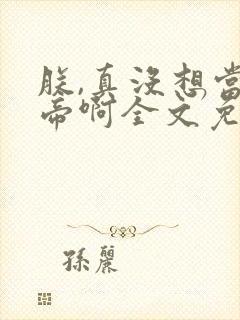 朕,真沒想當
帝啊全文免
孫麗